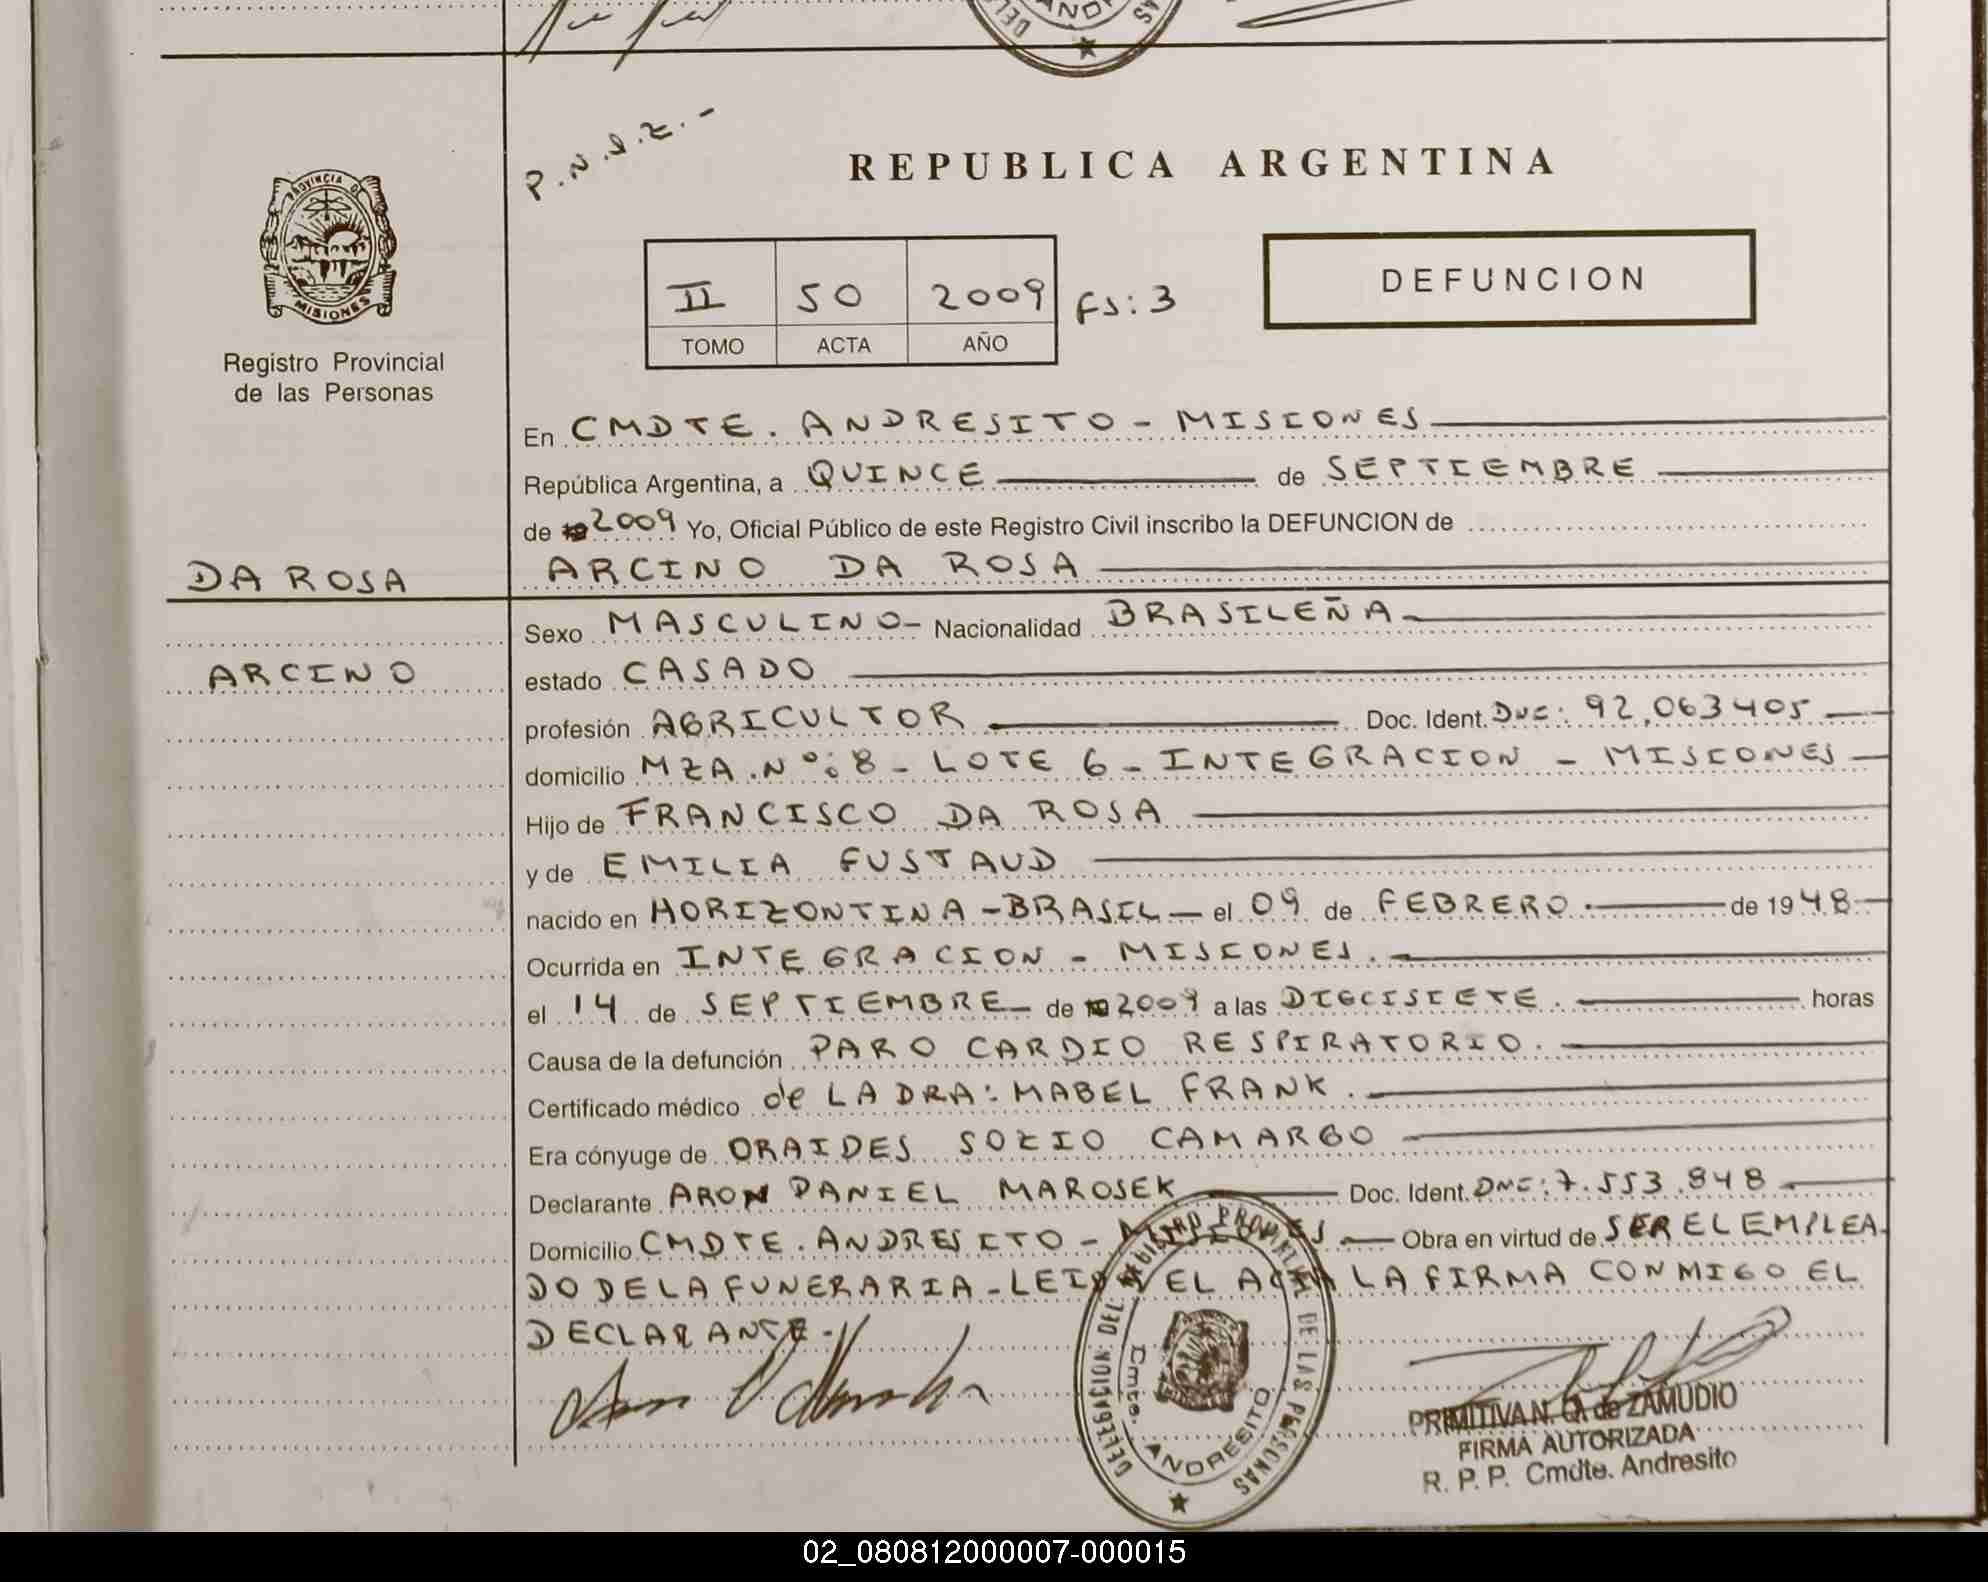 P.N.I.Z.-
REPUBLICA ARGENTINA
PROVINCIA DE
MISIONES
Registro Provincial
de las Personas
II 50 2009 FS: 3
TOMO ACTA AÑO
DEFUNCION
En CMDTE. ANDRESITO - MISIONES
República Argentina, a QUINCE de SEPTIEMBRE
de 2009 Yo, Oficial Público de este Registro Civil inscribo la DEFUNCION de
DA ROSA
ARCINO DA ROSA
Sexo MASCULINO- Nacionalidad BRASILEÑA
ARCINO
estado CASADO
profesión AGRICULTOR Doc. Ident. DNI: 92.063405
domicilio MZA. Nº: 8 - LOTE 6 - INTEGRACION - MISIONES
Hijo de FRANCISCO DA ROSA
y de EMILIA FUSTAUD
nacido en HORIZONTINA - BRASIL el 09 de FEBRERO. de 1948
Ocurrida en INTEGRACION - MISIONES.
el 14 de SEPTIEMBRE de 2009 a las DIECISIETE. horas
Causa de la defunción PARO CARDIO RESPIRATORIO.
Certificado médico de LA DRA: MABEL FRANK.
Era cónyuge de ORAIDES SOZIO CAMARGO
Declarante ARON DANIEL MAROSEK Doc. Ident. DNI: 7.553.848
Domicilio CMDTE. ANDRESITO - MISIONES Obra en virtud de SER EL EMPLEA
DO DE LA FUNERARIA - LEIDA EL ACTA LA FIRMA CONMIGO EL
DECLARANTE.-
DELEGACION DEL REGISTRO PROVINCIAL DE LAS PERSONAS
Cmte. ANDRESITO
PRIMITIVA N. Q. de ZAMUDIO
FIRMA AUTORIZADA
R. P. P. Cmdte. Andresito
02_080812000007-000015